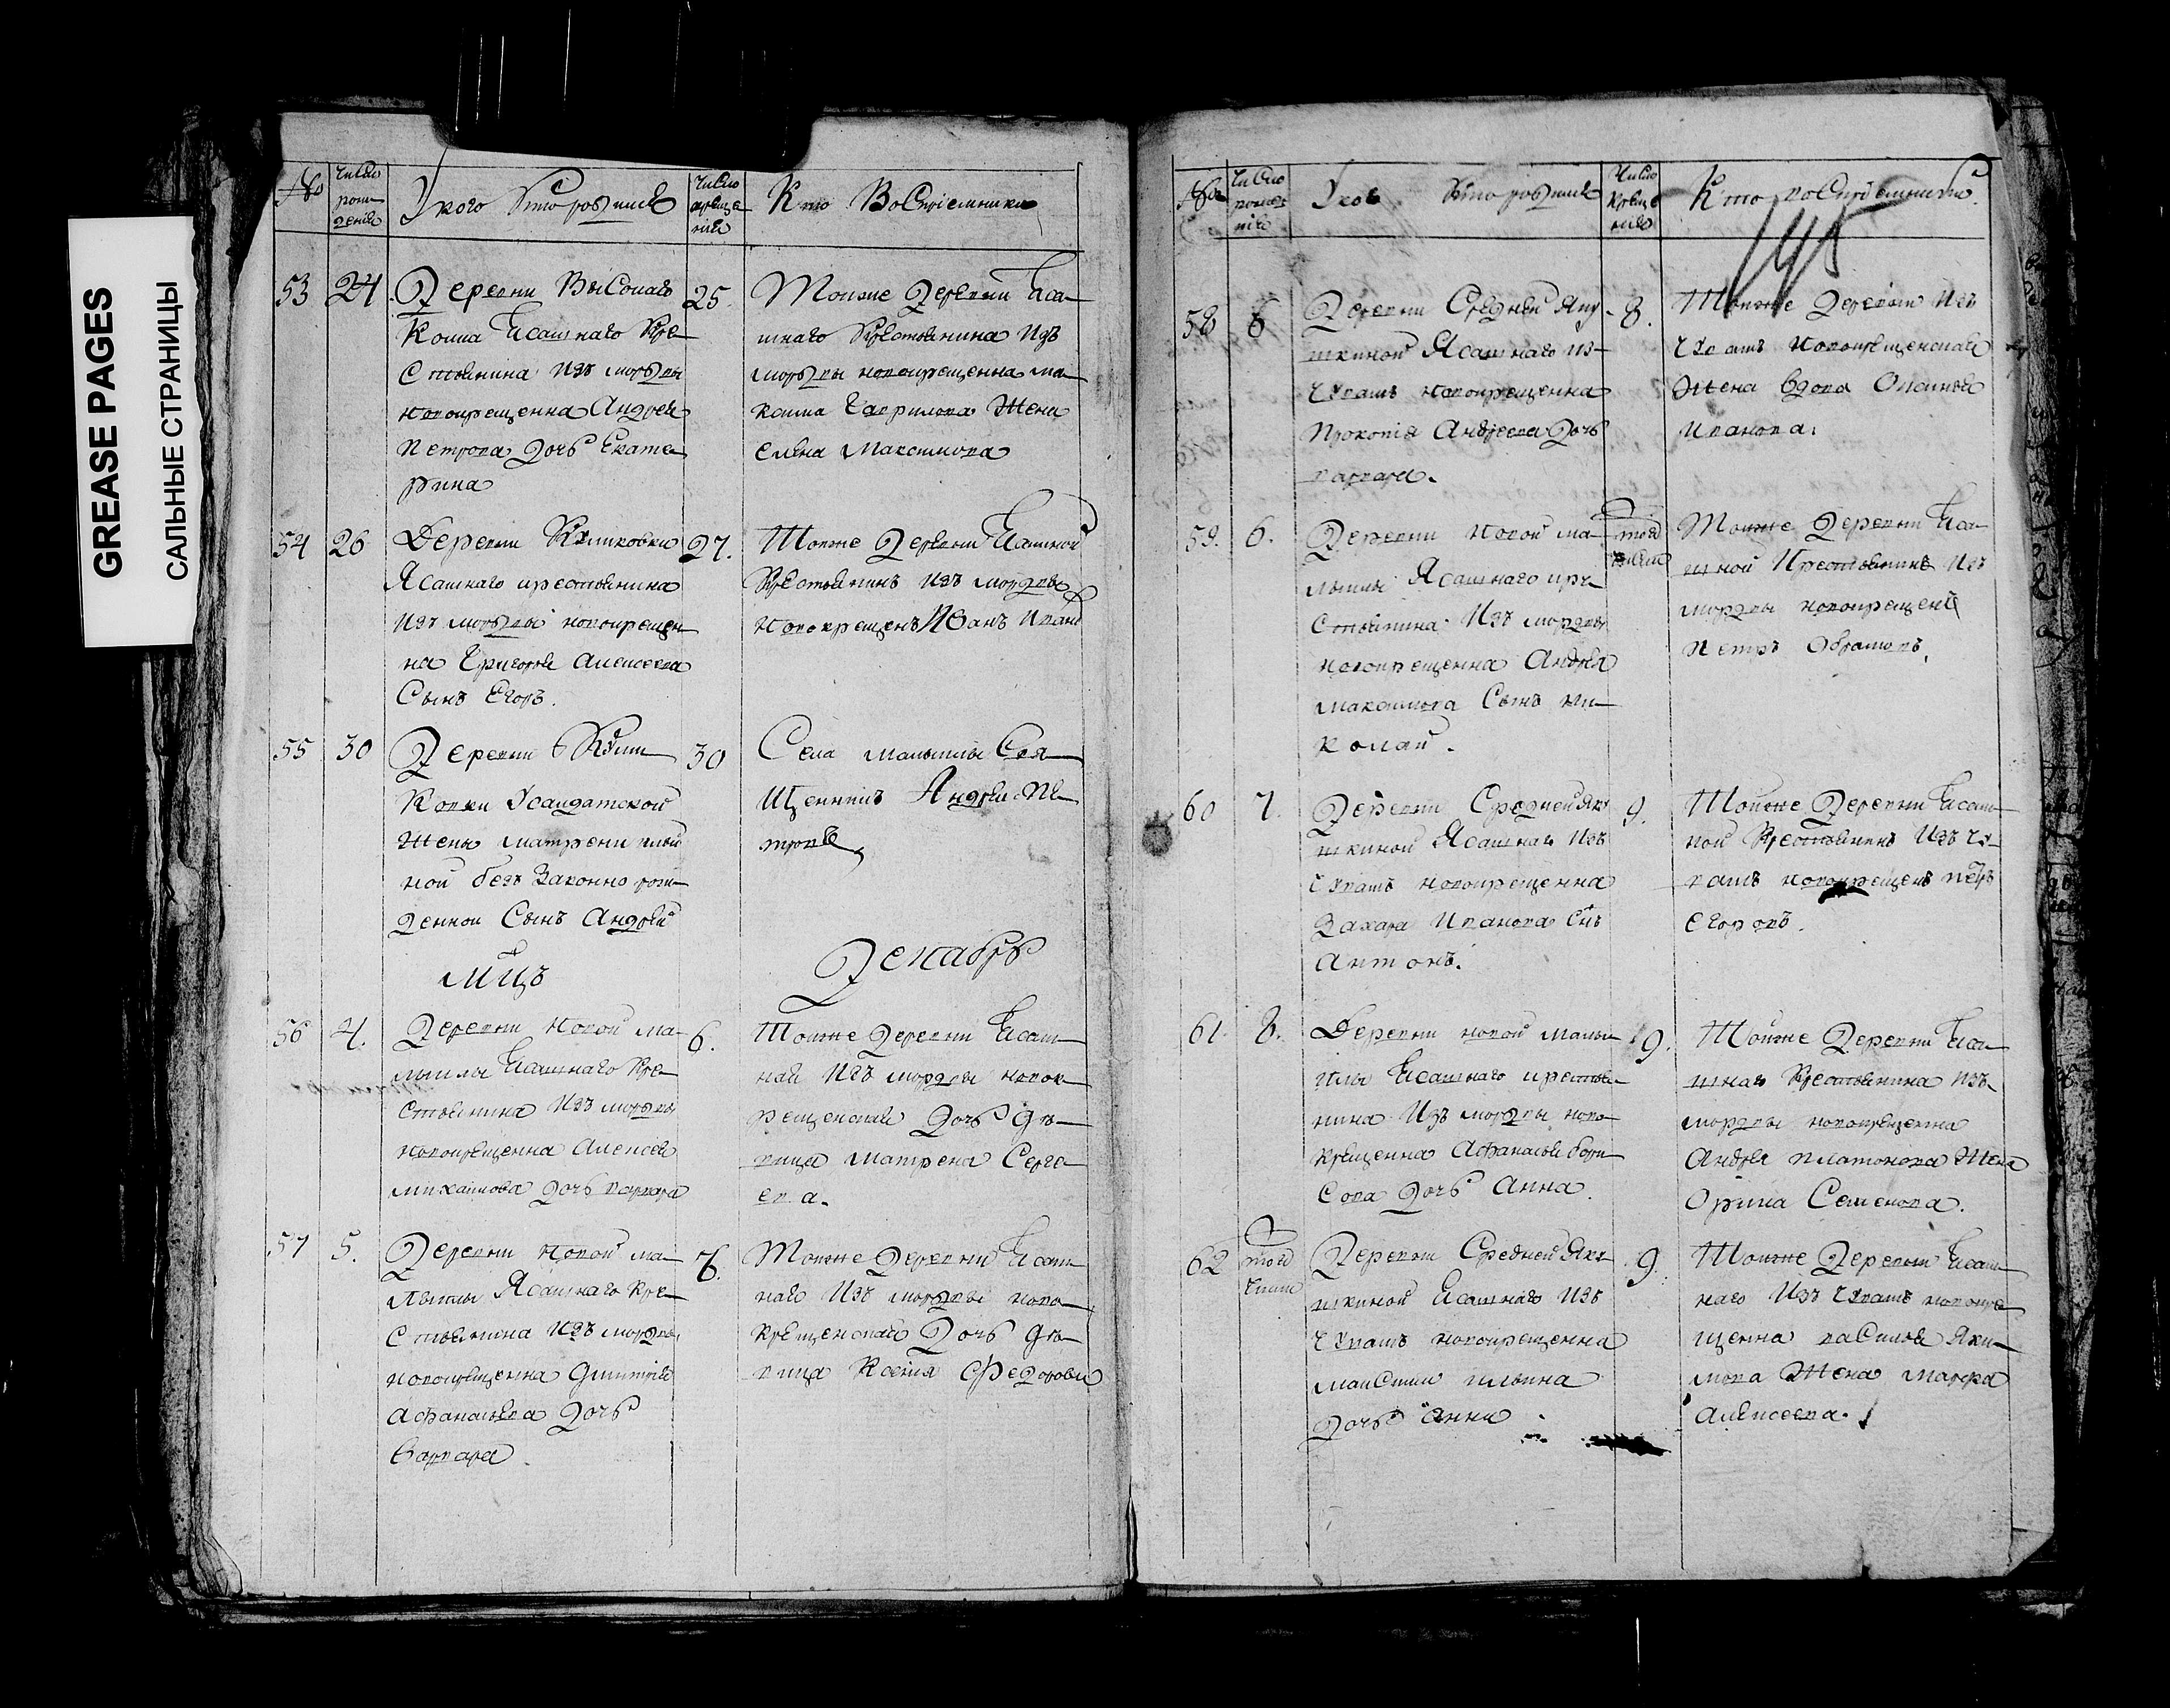 GREASE PAGES
САЛЬНЫЕ СТРАНИЦЫ
№
число
рож
дения
У кого Кто родился
число
креще
ния
Кто Восприемники
53
24
Деревни Высокаго
Колка Ясашнаго Кре
стьянина Изъ мордвы
новокрещенна Андрея
Петрова Дочь Екате
рина
25.
Тоиже Деревни Яса
шнаго Крестьянина Изъ
мордвы новокрещенна ма
ксима Гаврилова Жена
Елена Максимова
54
26
Деревни
Ясашнаго крестьянина
Изъ мордвы новокрещен
на Григорья Алексеева
Сынъ Егоръ.
27.
Тоиже Деревни Ясашной
Крестьянинъ Изъ мордвы
новокрещенъ Иванъ Иванов
55
30
Деревни
Ковки Усалдатской
Жены матрены
ной безъ Законно рож
денной Сынъ Андрей
30
Села малыклы Свя
щенникъ Андрей Пе
тровъ
Мцъ
Декабрь
56
4.
Деревни Новой ма
лыклы Ясашнаго Кре
стьянина Изъ мордвы
новокрещенна Алексея
михаилова Дочь варвара
6.
Тоиже Деревни Ясаш
ной Изъ мордвы новок
рещенской Дочь дѣ
вица матрена Серге
ева.
57
5.
Деревни Новой ма
лыклы Ясашнаго Кре
стьянина Изъ мордвы
новокрещенна Димитрия
Афанасьева Дочь
Варвара
6.
Тоиже Деревни Ясаш
наго Изъ мордвы ново
крещенской Дочь дѣ
вица Ксения Федорова
№
число
рожде
ние
У кого Кто родился
число
креще
ния
Кто восприемники.
145
58
6
Деревни Средней Яку
шкиной Ясашнаго из
Чувашъ новокрещенна
Прокопия Андреева Дочь
варвара.
8.
Тоиже Деревни Изъ
Чувашъ Новокрещенская
Жена вдова
Иванова.
59.
6.
Деревни Новой ма
лыклы Ясашнаго кре
стьянина Изъ мордвы
новокрещенна Андрея
максимова Сынъ ни
колай.
того
числа
Тоиже Деревни Яса
шной Крестьянинъ Изъ
мордвы новокрещенъ
Петръ Обрамовъ.
60
7.
Деревни Средней Яку
шкиной Ясашнаго Изъ
Чувашъ новокрещенна
Захара Иванова Снъ
Антонъ.
9.
Тоиже Деревни Ясаш
ной Крестьянинъ Изъ Чу
вашъ новокрещенъ петръ
Егоровъ.
61.
8.
Деревни новой малы
клы Ясашнаго крестья
нина Изъ мордвы ново
крещенна Афанасья бори
сова Дочь Анна.
9.
Тоиже Деревни Яса
шнаго Крестьянина Изъ
мордвы новокрещенна
Андрея платонова Жена
Орина Семенова.
62
того
числа
Деревни Средней Яку
шкиной Ясашнаго Изъ
Чувашъ новокрещенна
максима ильина
Дочь анна
9.
Тоиже Деревни Ясаш
наго Изъ Чувашъ новокре
щенна василья Яки
мова Жена марфа
Алексеева.